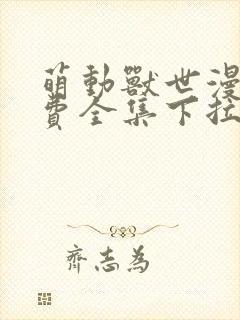 萌動獸世漫
費全集下拉
齊志為